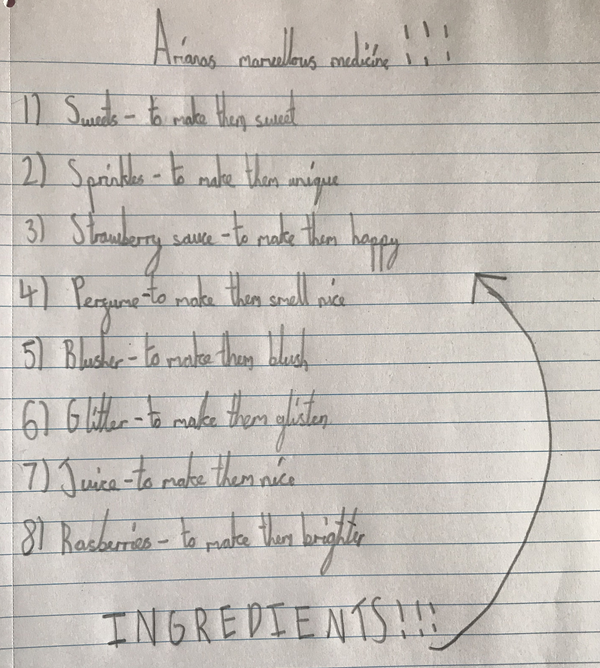 Arianas marvellous medicine !!!
1) Sweets - to make them sweet
2) Sprinkles - to make them unique
3) Strawberry sauce - to make them happy
4) Pergume - to make them smell nice
5) Blusher - to make them blush
6) Glitter - to make them glisten
7) Juice - to make them nice
8) Rasberries - to make them brighter
INGREDIENTS!!!